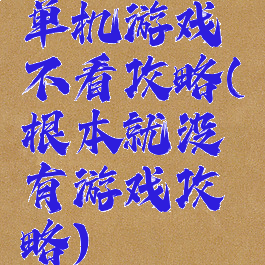 单机游戏
不看攻略(
根本就没
有游戏攻
略)